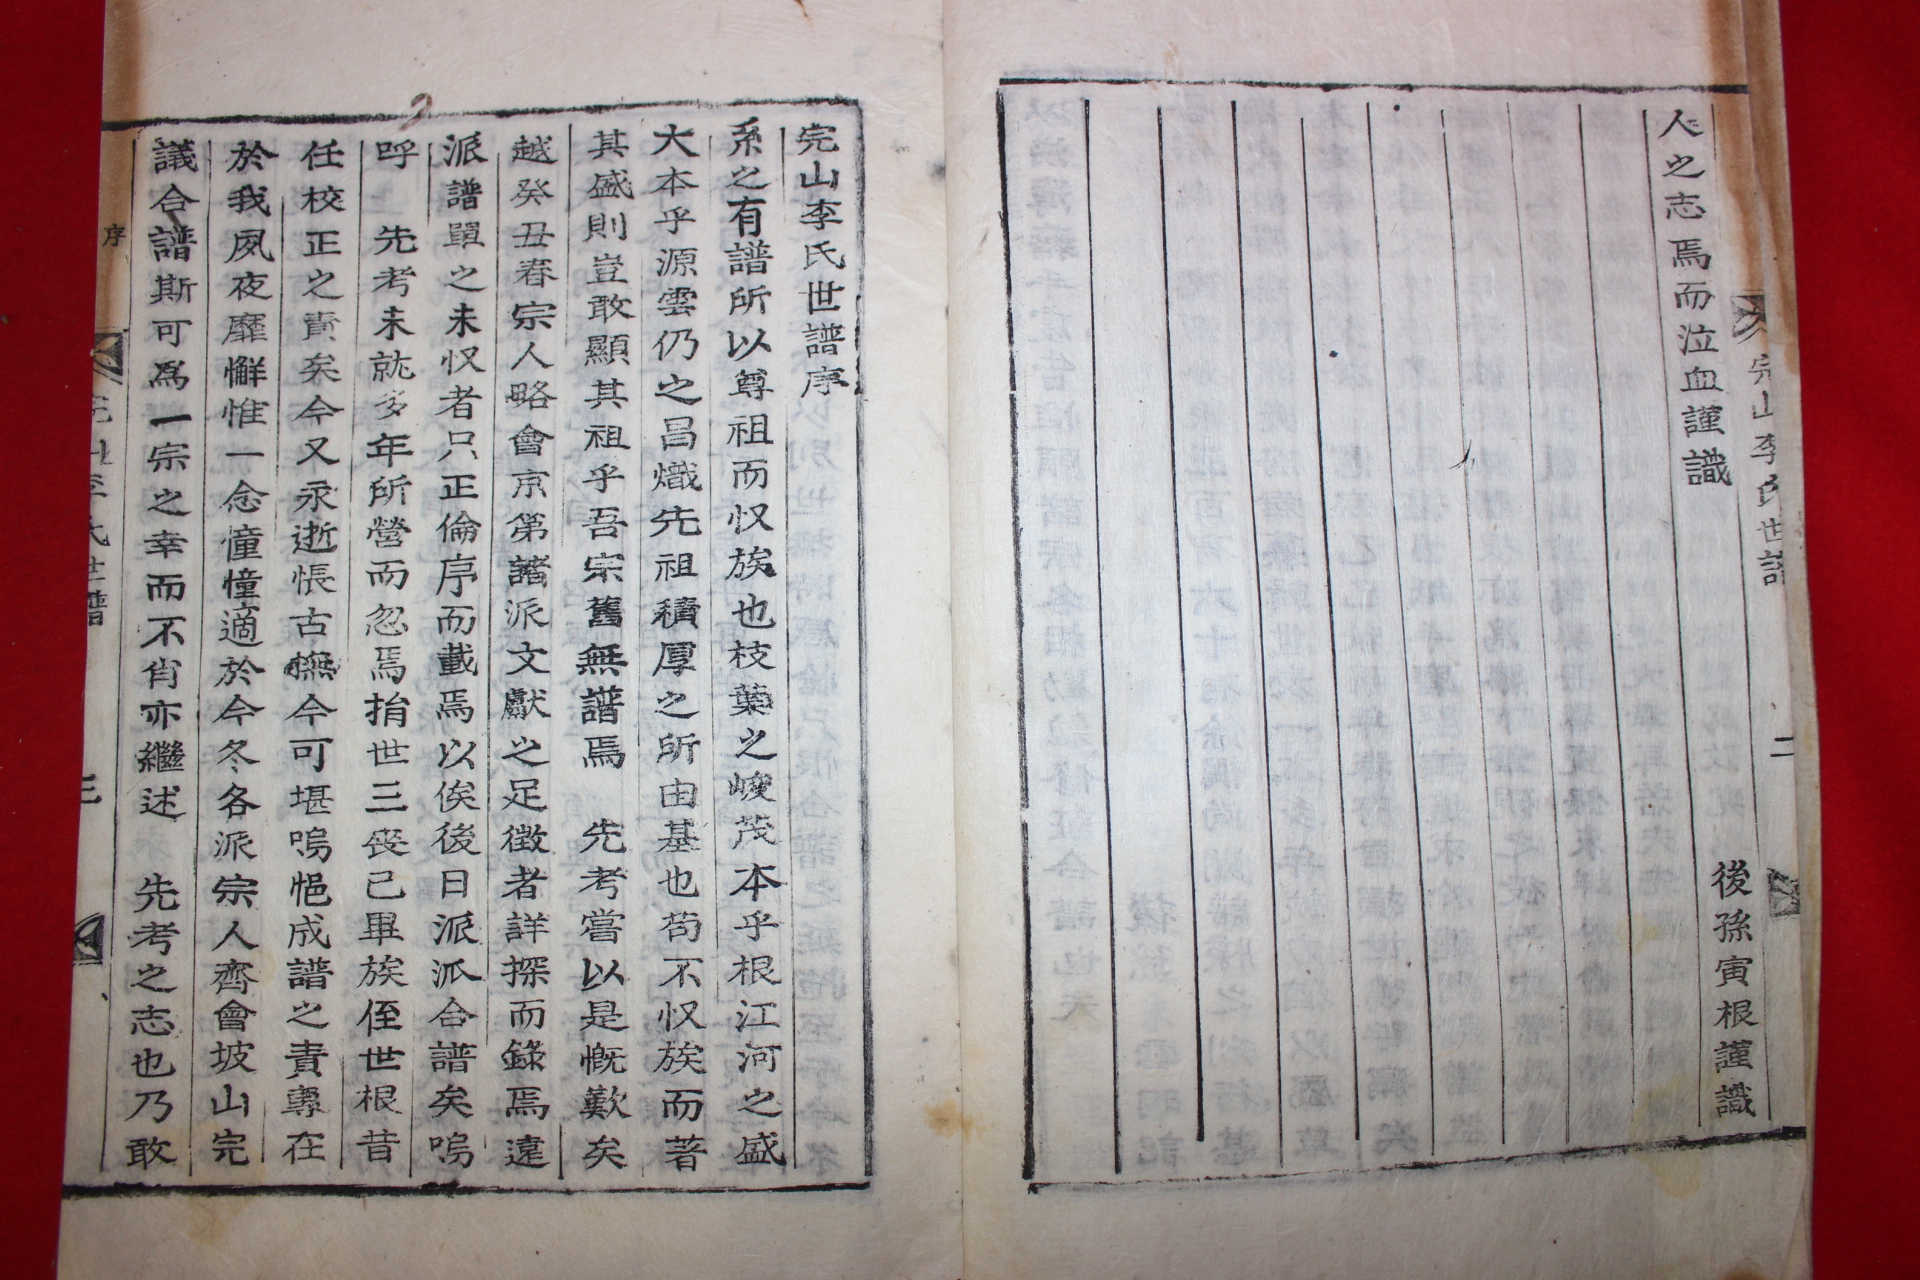 人之志焉而泣血謹識
後孫寅根謹識
完山李氏世譜
二
完山李氏世譜序
系之有譜所以尊祖而收族也枝葉之峻茂本乎根江河之盛
大本乎源雲仍之昌熾先祖積厚之所由基也苟不收族而著
其盛則豈敢顯其祖乎吾宗舊無譜焉 先考嘗以是慨歎矣
越癸丑春宗人略會京第諸派文獻之足徵者詳探而錄焉遠
派譜單之未收者只正倫序而載焉以俟後日派派合譜矣嗚
呼 先考未就多年所營而忽焉捐世三喪已畢族侄世根昔
任校正之責矣今又永逝悵古撫今可堪嗚悒成譜之責專在
於我夙夜靡懈惟一念憧憧適於今冬各派宗人齊會坡山完
議合譜斯可爲一宗之幸而不肖亦繼述 先考之志也乃敢
序
完山李氏世譜
三